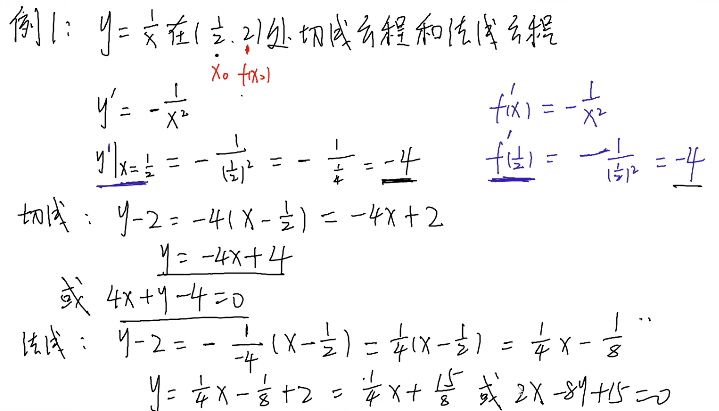 例1: y = 1/x 在 (1/2, 2) 处切线方程和法线方程
x₀ f(x₀)
y' = -1/x² f'(x) = -1/x²
y'|x=1/2 = -1/(1/2)² = -1/(1/4) = -4 f'(1/2) = -1/(1/2)² = -4
切线: y-2 = -4(x-1/2) = -4x+2
y = -4x+4
或 4x+y-4=0
法线: y-2 = -1/-4 (x-1/2) = 1/4(x-1/2) = 1/4 x - 1/8
y = 1/4 x - 1/8 + 2 = 1/4 x + 15/8 或 2x-8y+15=0